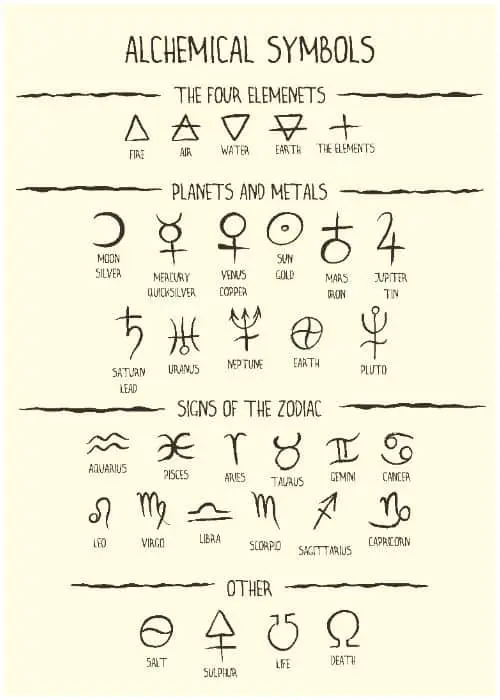 ALCHEMICAL SYMBOLS
THE FOUR ELEMENETS
FIRE AIR WATER EARTH THE ELEMENTS
PLANETS AND METALS
MOON MERCURY VENUS SUN MARS JUPITER
SILVER QUICKSILVER COPPER GOLD IRON TIN
SATURN URANUS NEPTUNE EARTH PLUTO
LEAD
SIGNS OF THE ZODIAC
AQUARIUS PISCES ARIES TAURUS GEMINI CANCER
LEO VIRGO LIBRA SCORPIO SAGITTARIUS CAPRICORN
OTHER
SALT SULPHUR LIFE DEATH